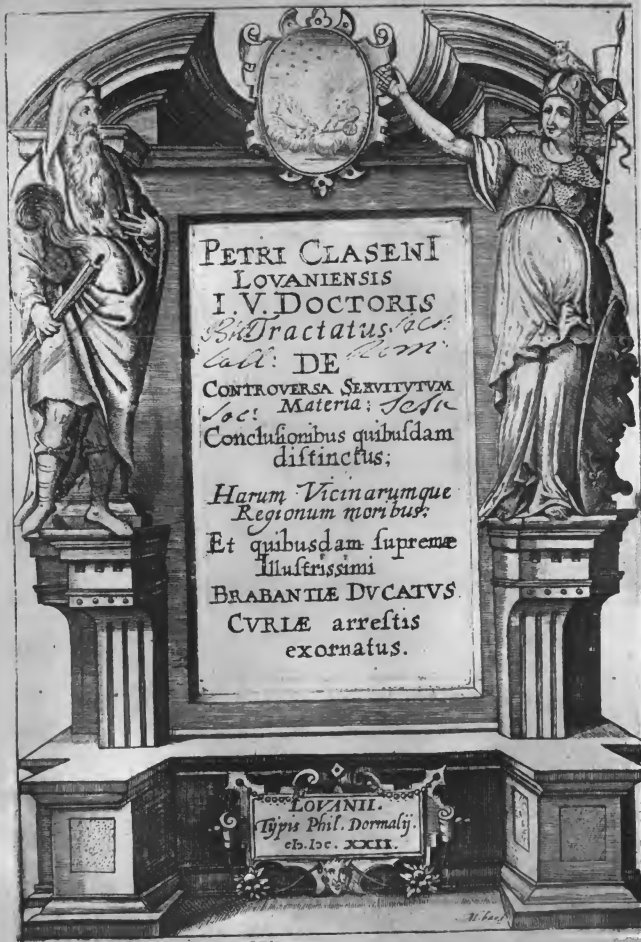 PETRI CLASENI
LOVANIENSIS
I. V. DOCTORIS
Tractatus
DE
CONTROVERSA SERVITVTVM
Materia;
Conclusionibus quibusdam
distinctus;
Harum Vicinarumque
Regionum moribus;
Et quibusdam supremæ
Illustrissimi
BRABANTIÆ DVCATVS
CVRIÆ arrestis
exornatus.
LOVANII.
Typis Phil. Dormalij.
cIↄ.Iↄc. XXII.